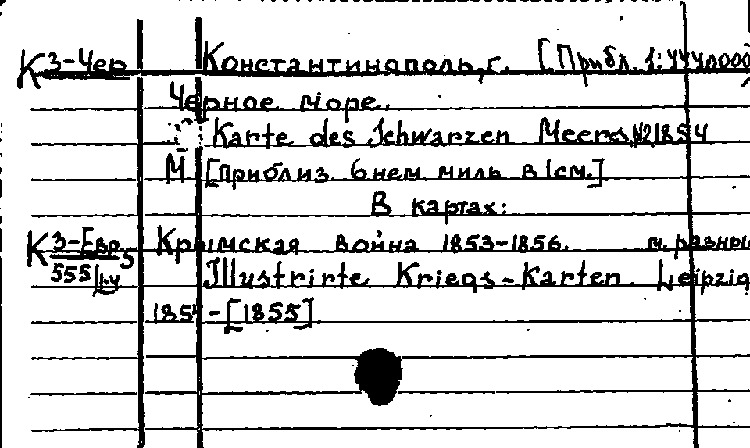 К 3-Чер Константинополь, г. [Прибл. 1:4440000]
Черное море.
Karte des Schwarzen Meeres, №2 1854
М [Приблиз. 6 нем. миль в 1 см.]
В картах:
К 3-Евр. 5 Крымская война 1853-1856. м. разный
555 Illustrirte Kriegs-Karten. Leipzig
1854-[1855]